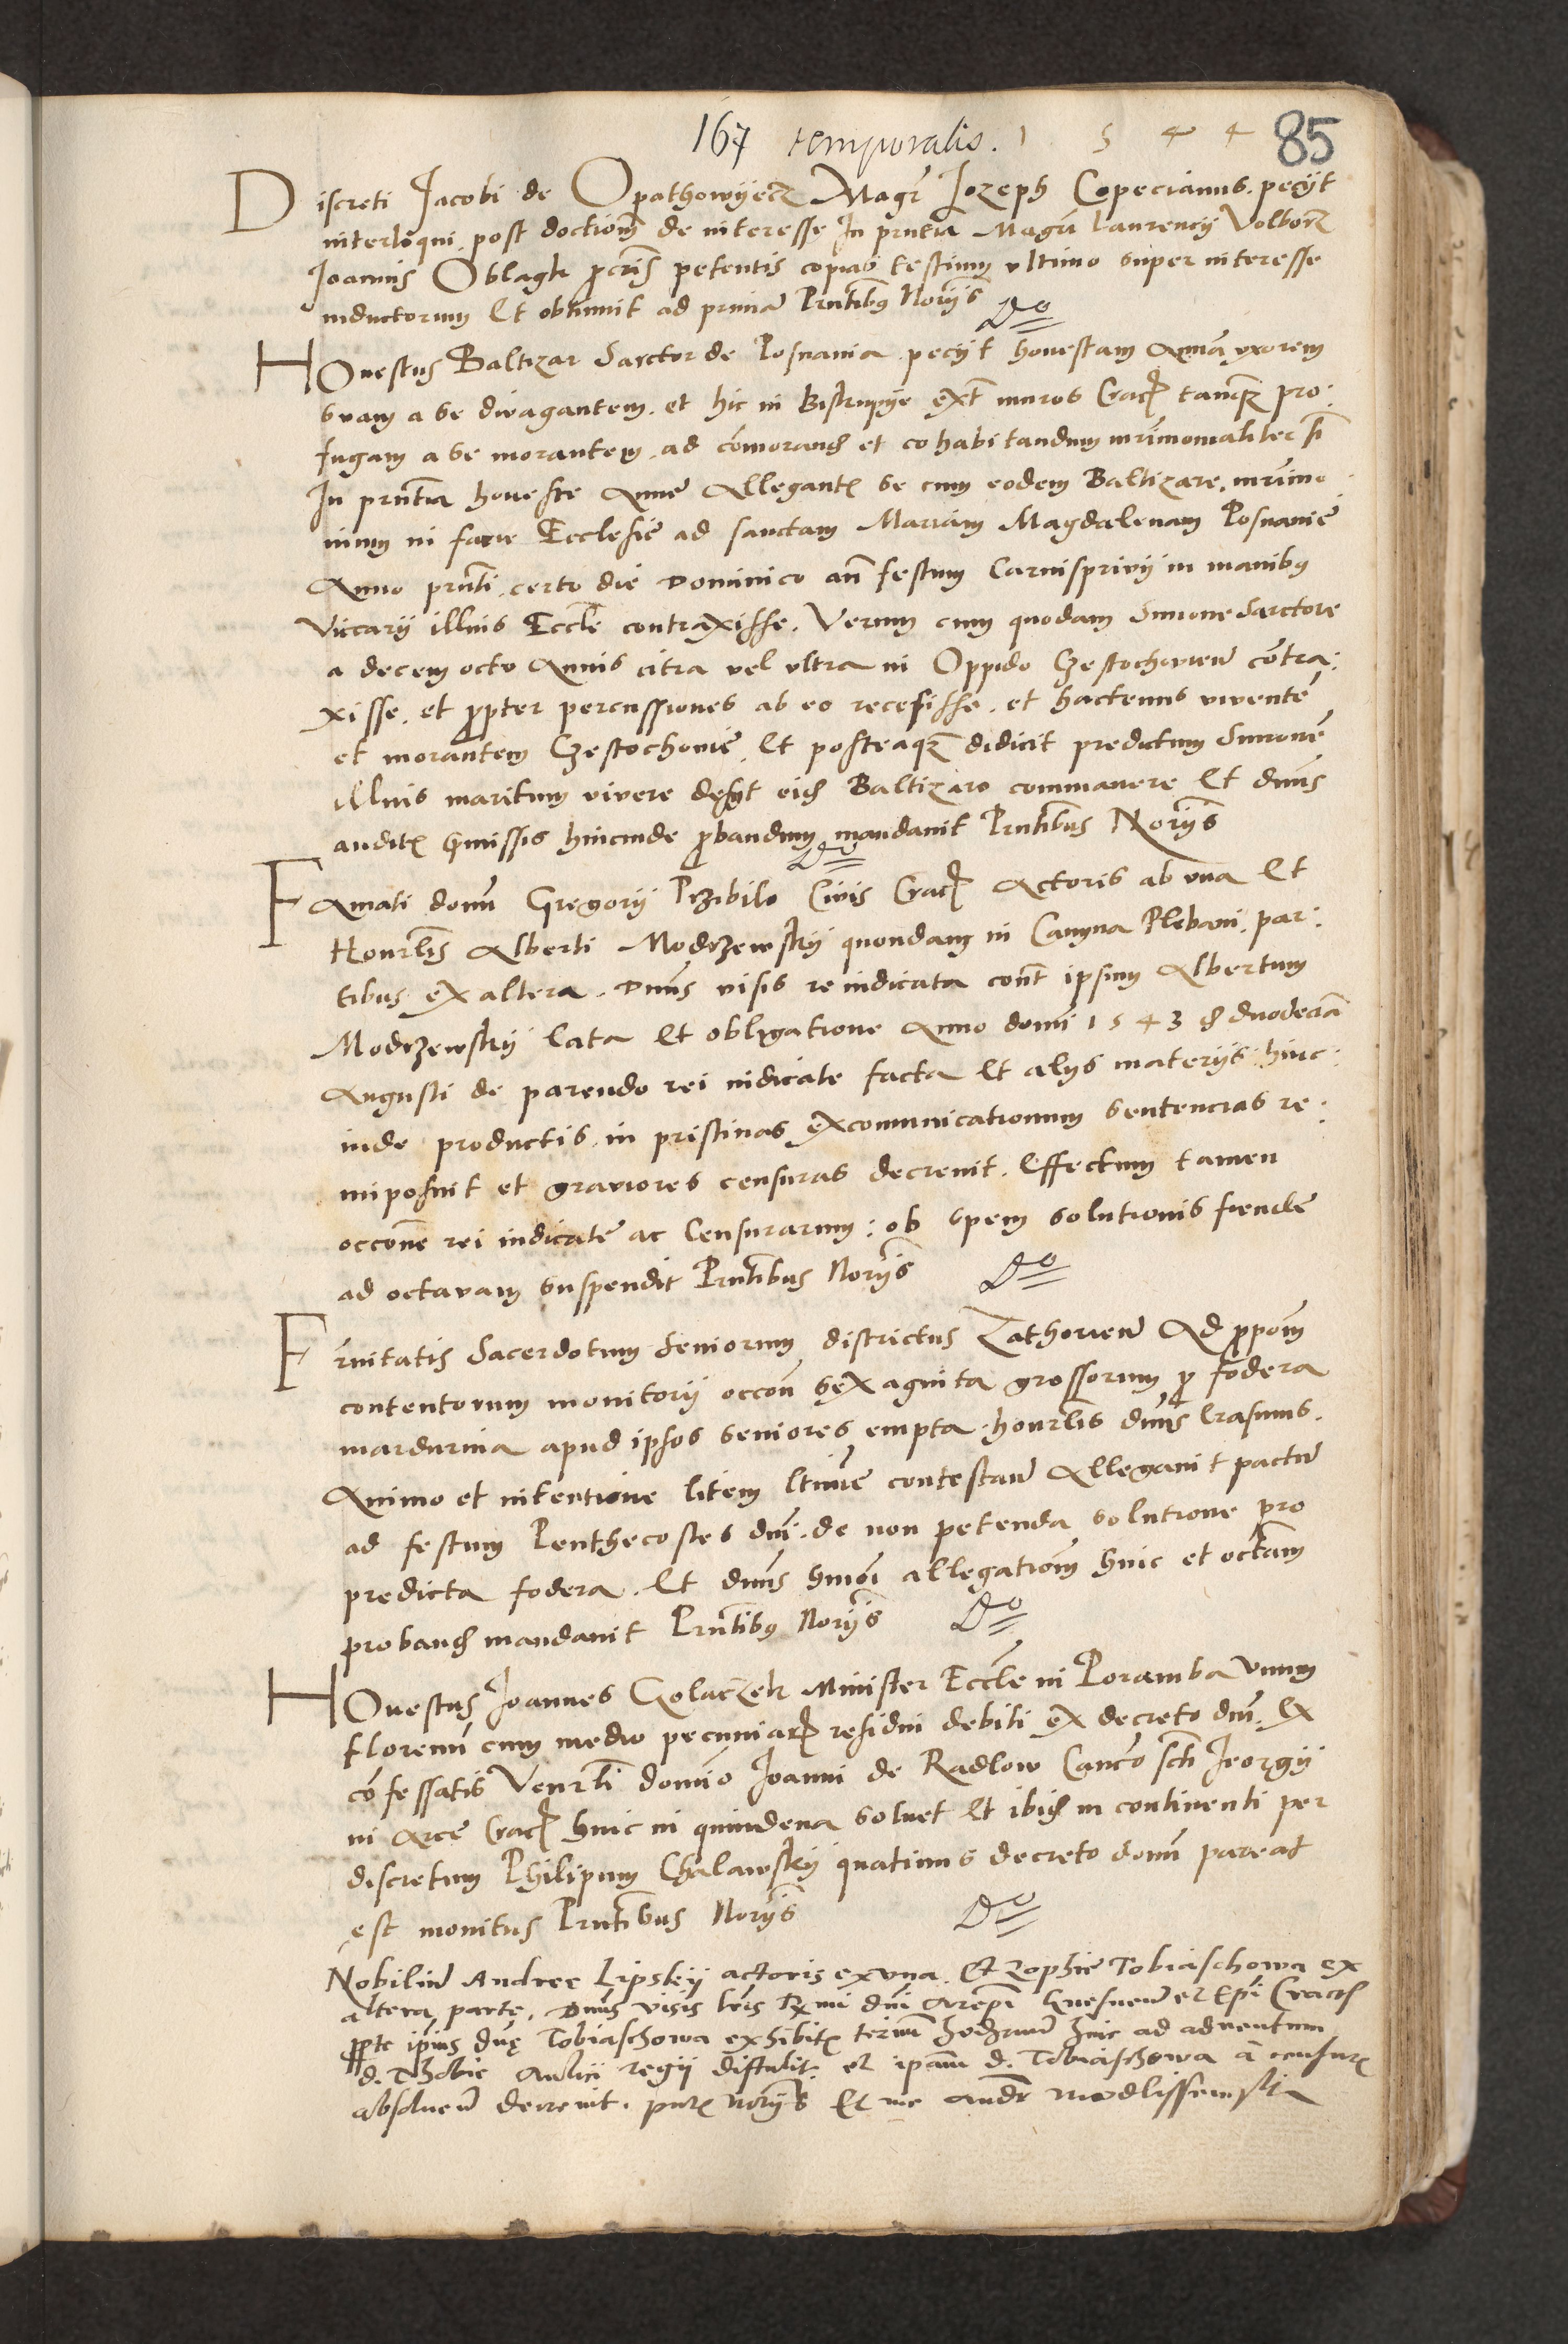 167 temporalis. 1 5 4 4 85
Discreti Jacobi de Opathowyecz Magr Jozeph Copecianus. pecyt
interloqui post doctionem de interesse In prntia Magri Laurencij Volborz
Joannis Oblagk procuris petentis copias testium ultimo super interesse
inductorum Et obtinuit ad primam Prntibus Norijs
HOnestus Baltizar Sarctor de Posnania pecyt honestam Annam uxorem
suam a se divagantem. et hic in Bistrupye ext muros Crac tamqz pro:
fugam a se morantem, ad comorand et cohabitandum mrimonialiter sibi
In prntia honeste Anne Allegantis se cum eodem Baltizare, mrimo:
nium in facie Ecclesie ad sanctam Mariam Magdalenam Posnanie
Anno prnti certo die Dominico an festum Carnisprivij in manibus
Viccarij illius Eccle contraxisse. Verum cum quodam Simone Sarctore
a decem octo Annis citra vel ultra in Oppido Czestochovien contra:
xisse. et propter percussiones ab eo recesisse. et hactenus viventem
et morantem Czestochovie, Et posteaqz didicit predictum Simonem
illius maritum vivere desyt eid Baltizaro commanere Et dnus
auditis premissis hincinde probandum mandavit Prntibus Norijs
FAmati domini Gregorij Przibilo Civis Crac Actoris ab una Et
Honrlis Alberti Modrzewskij quondam in Camyna Plebani par:
tibus ex altera. Dnus visis re iudicata cont ipsum Albertum
Modrzewskij lata Et obligatione Anno domi 1543 d duodecima
Augusti de parendo rei iudicate facta Et alijs materijs hinc:
inde productis in pristinas excomunicationum sentencias re:
imposuit et graviores censuras decrevit. Effectum tamen
occone rei iudicate ac Censurarum: ob spem solutionis fiende
ad octavam suspendit Prntibus Norijs
Frnitatis Sacerdotum Seniorum districtus Zathorien Ad propom
contentorum monitorij occon sexaginta grossorum pro fodera
mardurina apud ipsos seniores empta. honrlis dnus Erasmus.
Animo et intentione litem ltime contestan Allegavit pactum
ad festum Penthecostes dni. de non petenda solutione pro
predicta fodera. Et dnus hmoi allegationem hinc et octavam
proband mandavit Prntibus Norijs
HOnestus Joannes Golaczek Minister Eccle in Poramba Unum
florenum cum medio pecuniarum residui debiti ex decreto dni. Ex
confessatis Venrli domino Joanni de Radlow Canco scti Jeorgij
in Arce Crac hinc in quindena solvet Et ibid in continenti per
discretum Philipum Chalawskij quatinus decreto domi pareat
est monitus Prntibus Norijs
Nobilium Andree Lipskij actoris ex una. Et Zophie Tobiaschowa ex
altera parte, Dnus visis lris Rmi dni Arepi Gnesnen et Epi Cracov
pro parte ipsius dne Tobiaschowa exhibitis hinc ad adventum
d. Thobie Aulici regij distulit. et ipsam d. Tobiaschowa a censuris
absolven decrevit. pntibus norijs Et me Andr Modlissewski